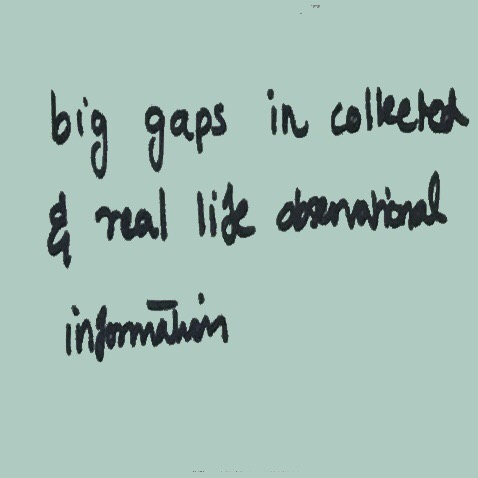 big gaps in collected
& real life observational
information